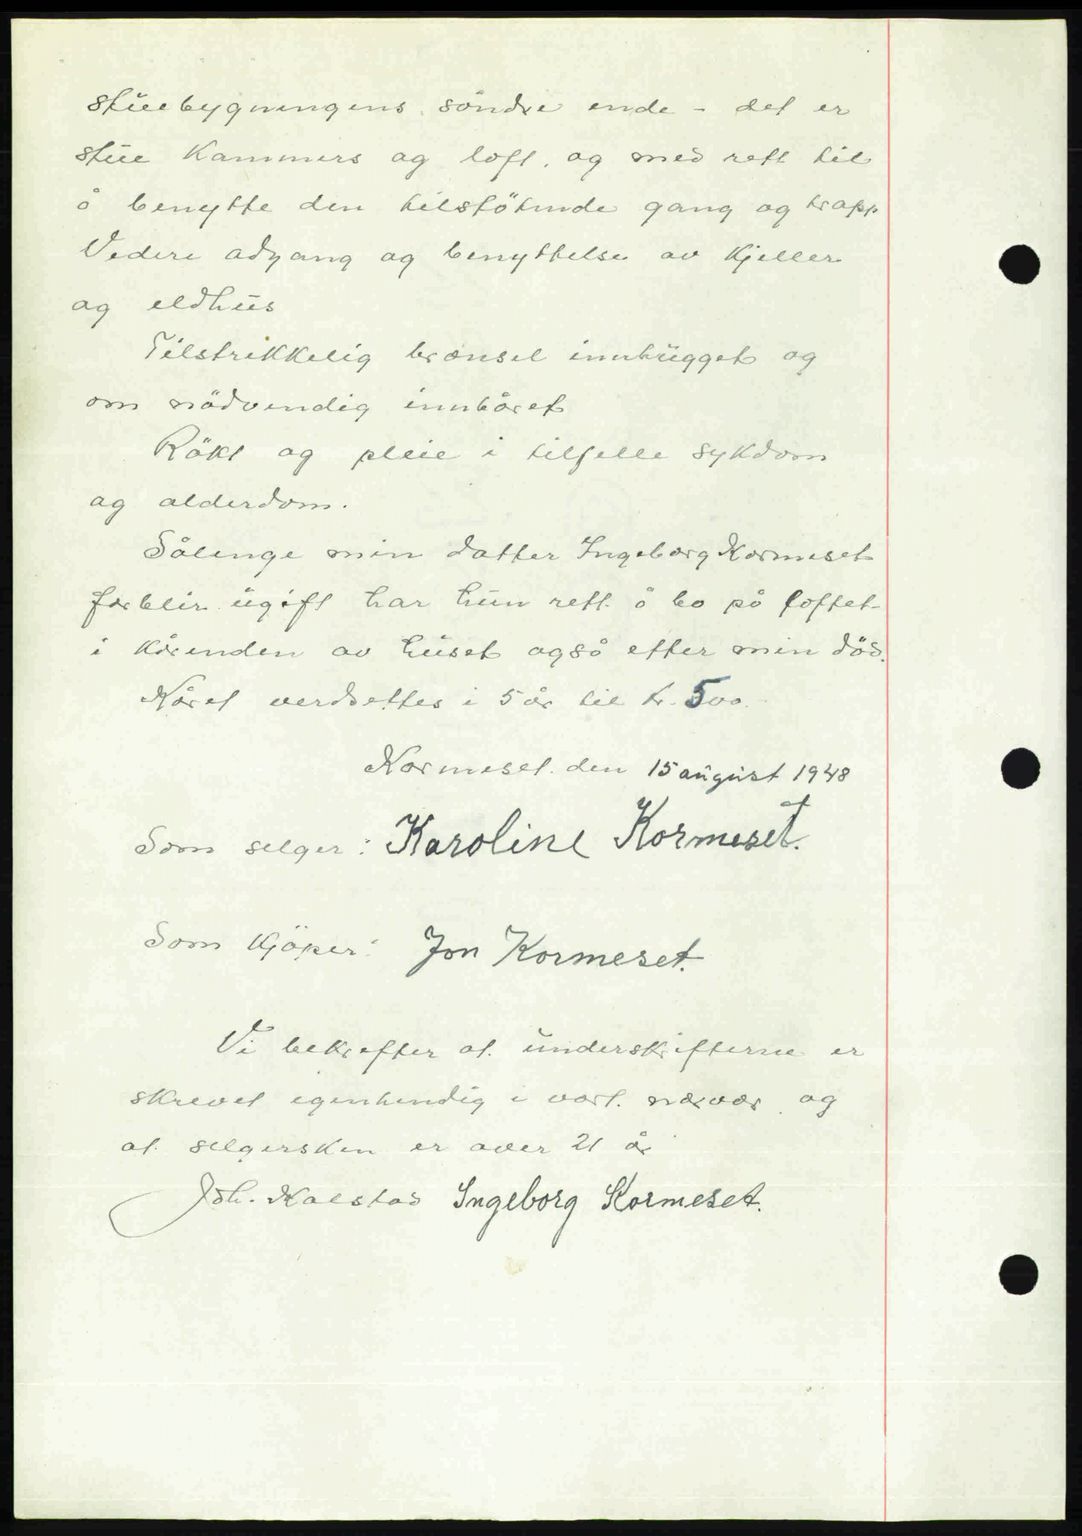 stuebygningens söndre ende - det er
stue Kammers og loft, og med rett til
å benytte den tilstötende gang og trapp
Videre adgang og benyttelse av Kjeller
og eldhus
Tilstrikkelig brensel innhugget og
om nödvendig innbåret
Rökt og pleie i tilfelle sykdom
og alderdom.
Sålenge min datter Ingeborg Kormeset
forblir ugift har hun rett å bo på loftet
i kårenden av huset også efter min död.
Kåret verdsettes i 5 år til kr. 500.
Kormeset den 15 august 1948
Som selger: Karoline Kormeset.
Som Kjöper: Jon Kormeset.
Vi bekrefter at underskrifterne er
skrevet egenhendig i vort nærvær og
at selgersken er over 21 år
Joh. Kalstad Ingeborg Kormeset.